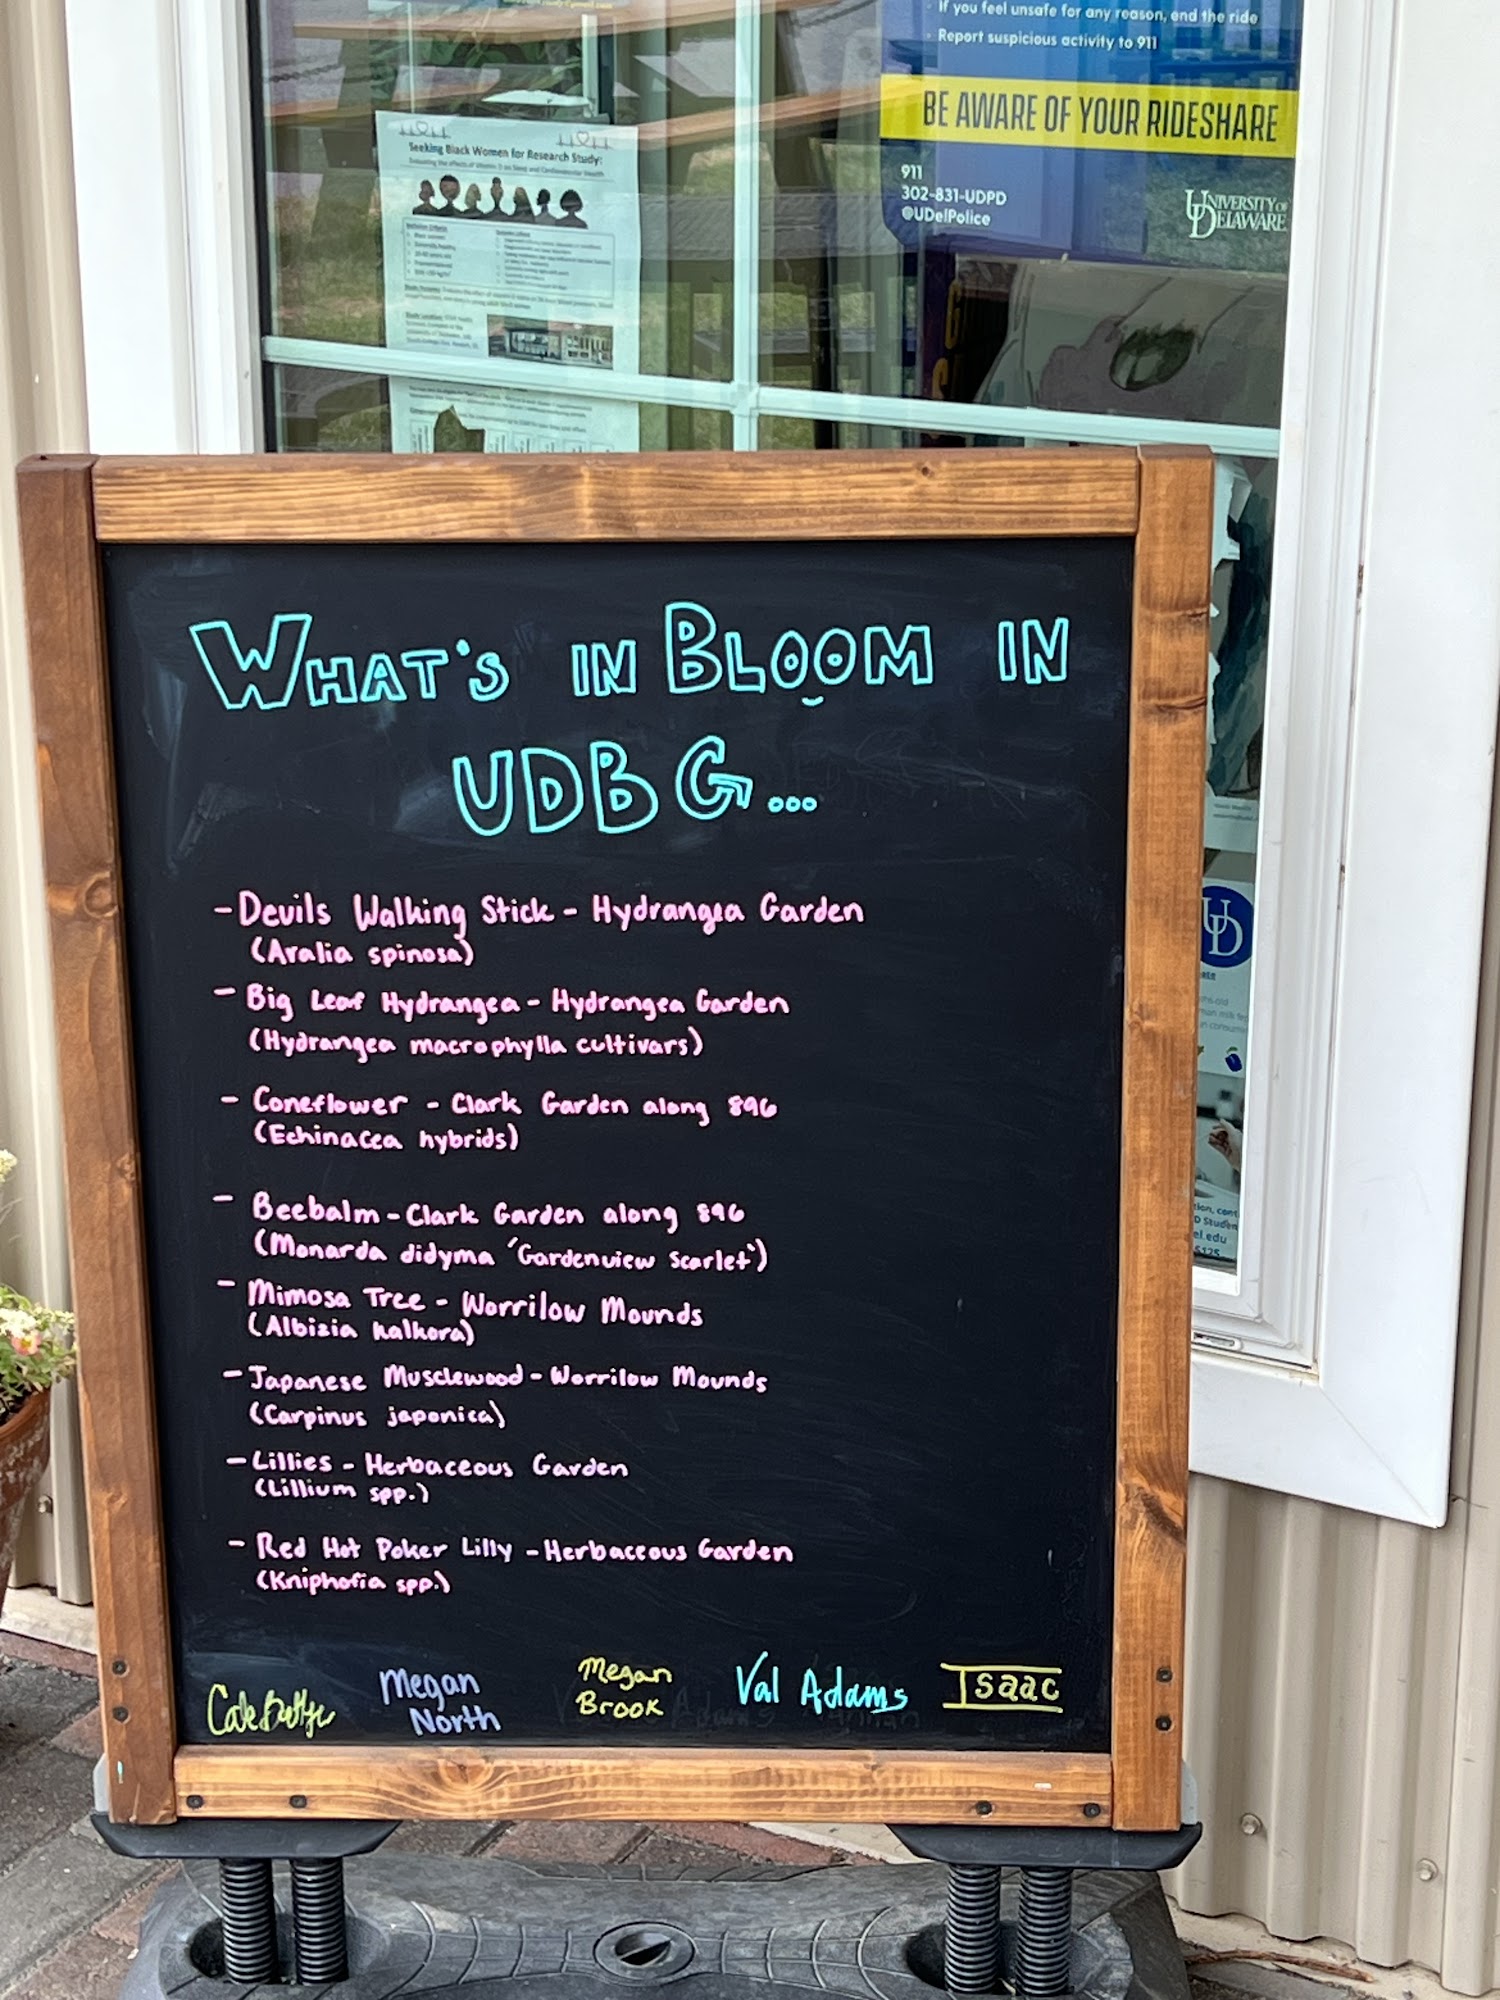 If you feel unsafe for any reason, end the ride
Report suspicious activity to 911
BE AWARE OF YOUR RIDESHARE
911
302-831-UDPD
@UDelPolice
UNIVERSITY OF
DELAWARE
Seeking Black Women for Research Study:
Evaluating the effects of Vitamin D on Sleep and Cardiovascular Health
WHAT'S IN BLOOM IN
UDBG...
- Devils Walking Stick - Hydrangea Garden
(Aralia spinosa)
- Big Leaf Hydrangea - Hydrangea Garden
(Hydrangea macrophylla cultivars)
- Coneflower - Clark Garden along 896
(Echinacea hybrids)
- Beebalm - Clark Garden along 896
(Monarda didyma 'Gardenview Scarlet')
- Mimosa Tree - Worrilow Mounds
(Albizia kalkora)
- Japanese Musclewood - Worrilow Mounds
(Carpinus japonica)
- Lillies - Herbaceous Garden
(Lillium spp.)
- Red Hot Poker Lilly - Herbaceous Garden
(Kniphofia spp.)
Megan
North
Megan
Brook
Val Adams
Isaac
UD